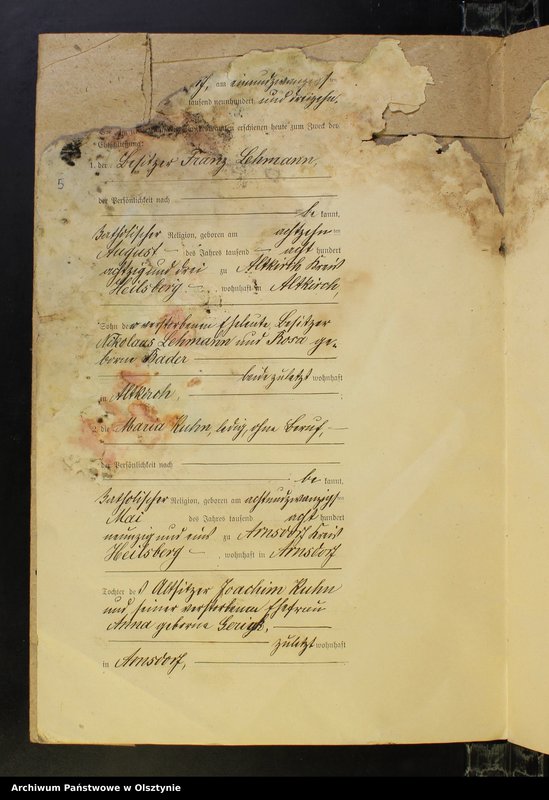 am einundzwanzigsten
tausend neunhundert und dreizehn.
erschienen heute zum Zweck der
Eheschließung:
1. der Besitzer Franz Lehmann,
5
der Persönlichkeit nach
be kannt,
katholischer Religion, geboren am achtzehnten
August des Jahres tausend acht hundert
achtzig und drei zu Altkirch Kreis
Heilsberg, wohnhaft in Altkirch,
Sohn der verstorbenen Eheleute, Besitzer
Nikolaus Lehmann und Rosa ge-
borene Bader
beide zuletzt wohnhaft
in Altkirch,
2. die Maria Kuhn, ledig, ohne Beruf,
der Persönlichkeit nach
be kannt,
katholischer Religion, geboren am achtundzwanzigsten
Mai des Jahres tausend acht hundert
neunzig und eins zu Arnsdorf Kreis
Heilsberg, wohnhaft in Arnsdorf
Tochter des Altsitzer Joachim Kuhn
und seiner verstorbenen Ehefrau
Anna geborene
zuletzt wohnhaft
in Arnsdorf,
Archiwum Państwowe w Olsztynie